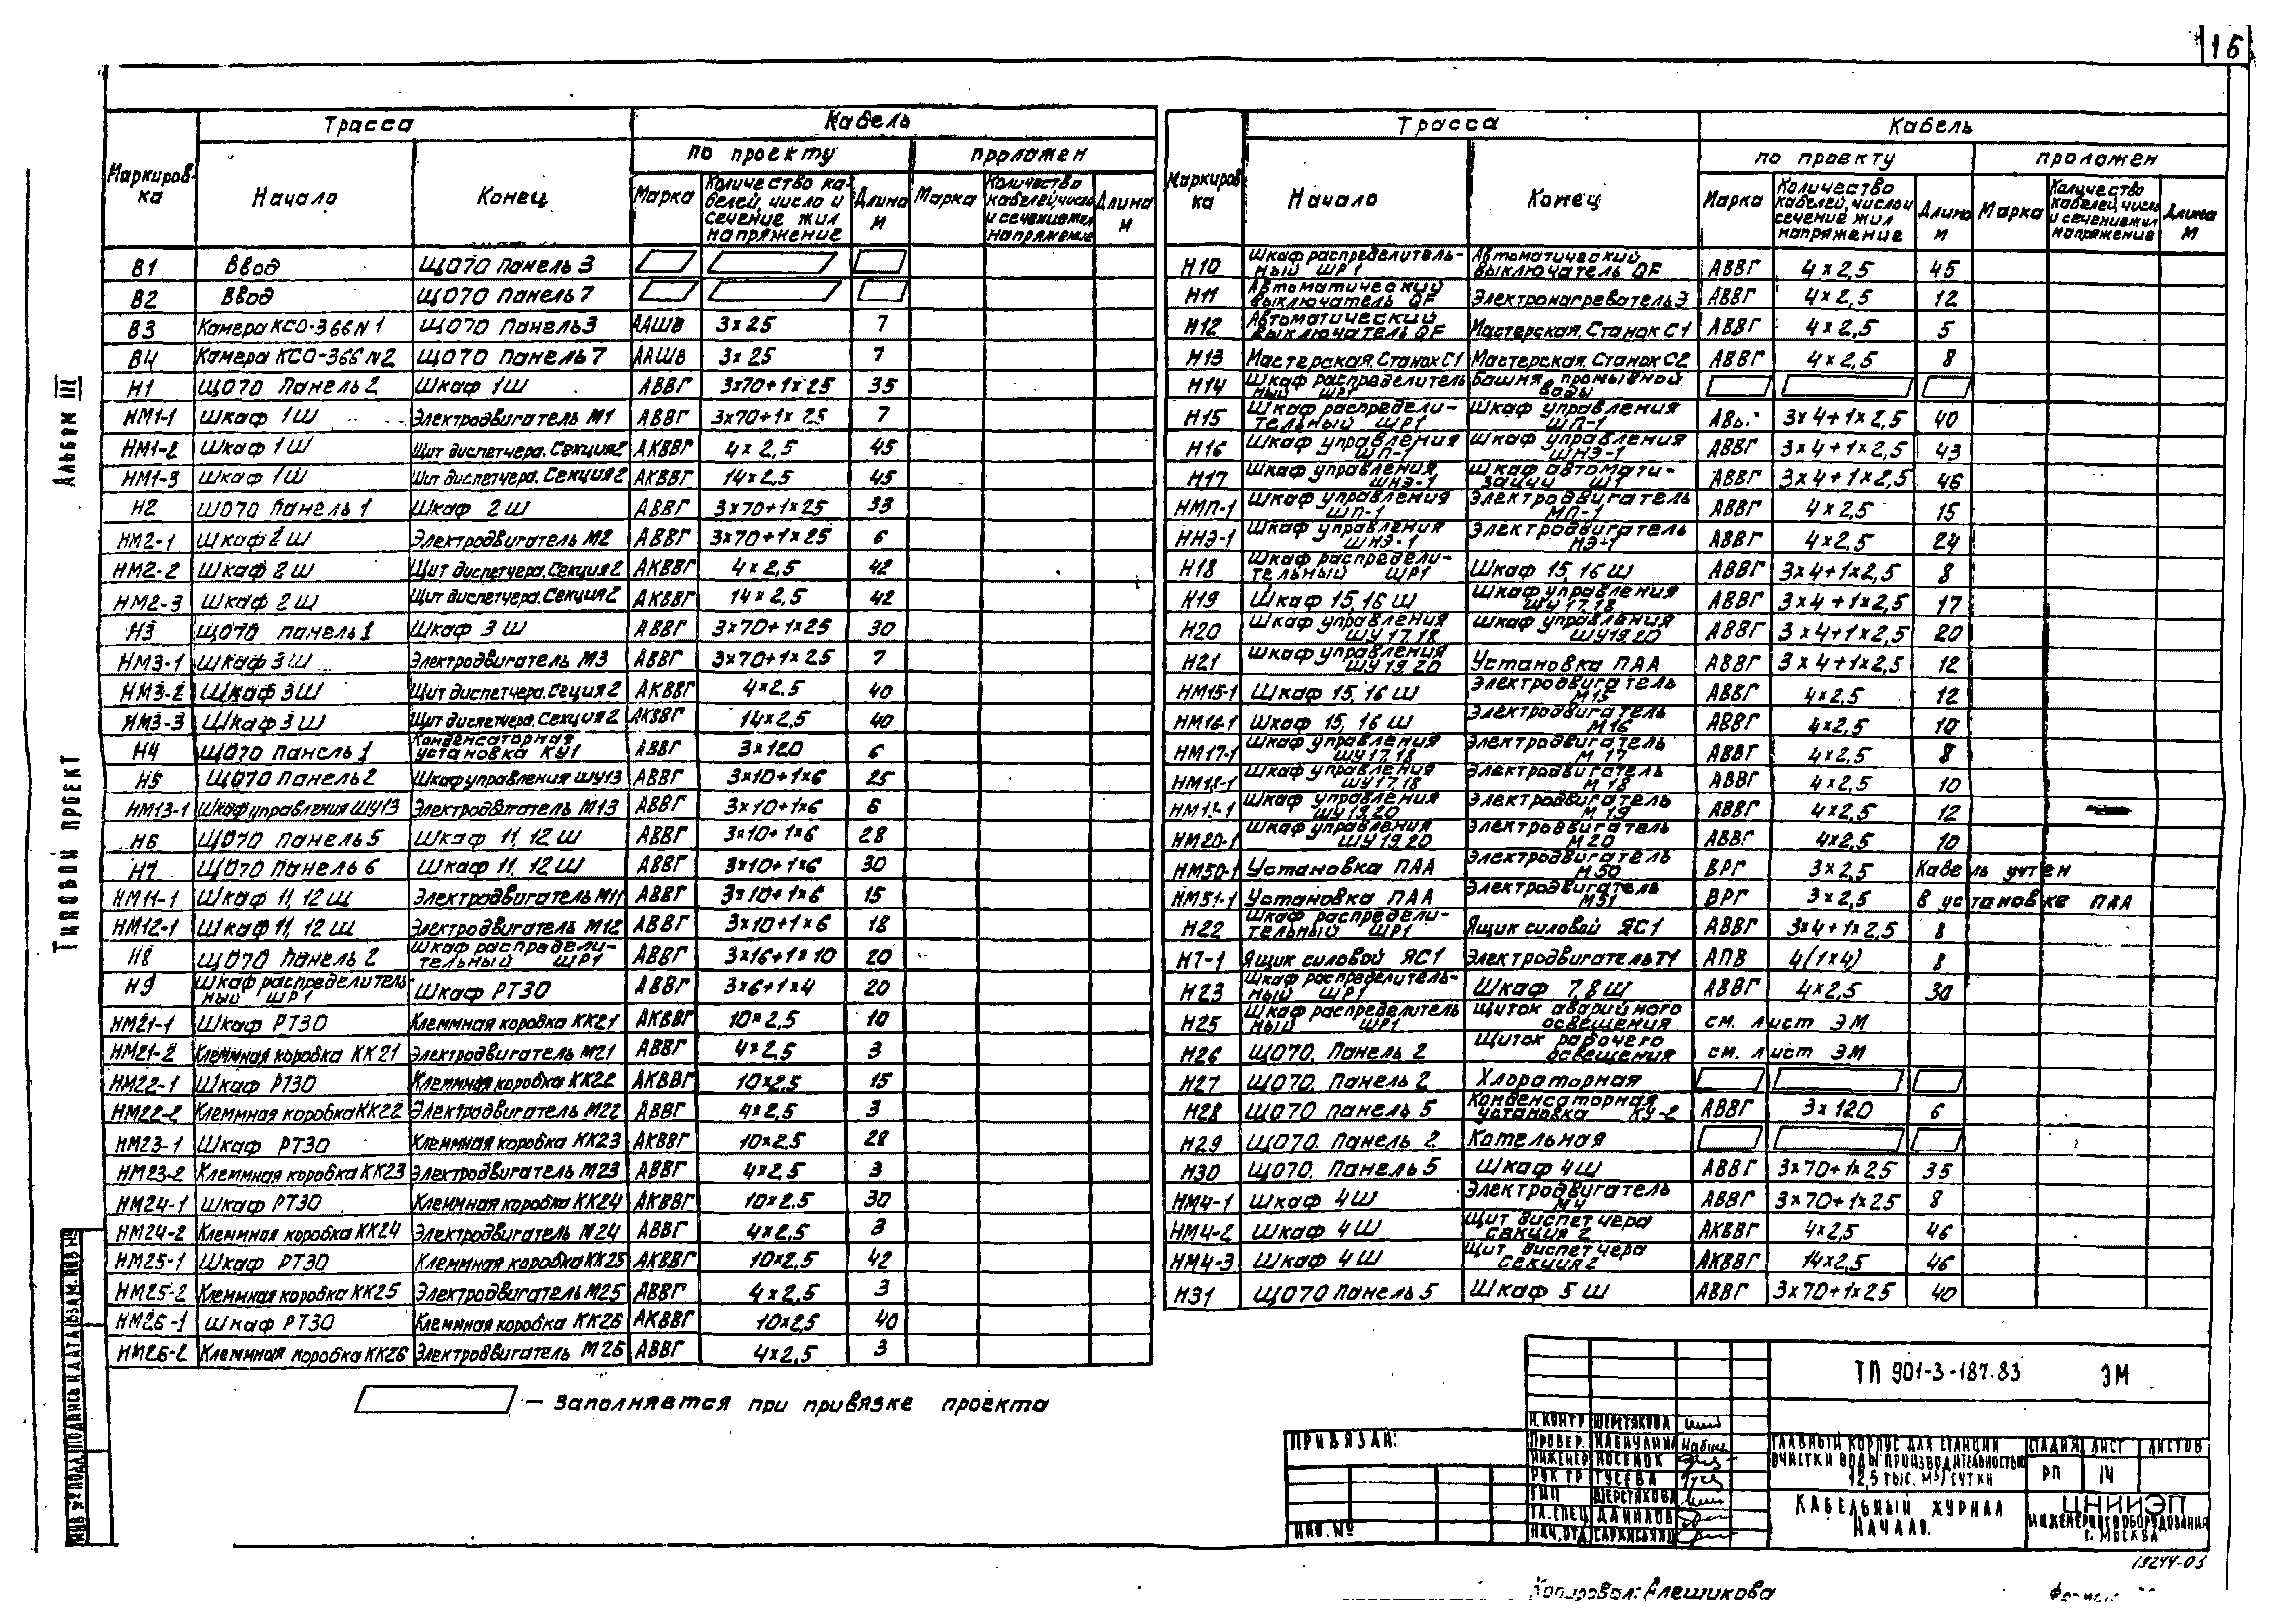 16
Альбом III
Типовой проект
Маркировка | Трасса | Кабель
по проекту | проложен
Начало | Конец | Марка | Количество кабелей, число и сечение жил напряжение | Длина м | Марка | Количество кабелей, число и сечение жил напряжение | Длина м
В1 Ввод ЩО70 Панель 3
В2 Ввод ЩО70 Панель 7
В3 Камера КСО-366 N1 ЩО70 Панель 3 ААШВ 3×25 7
В4 Камера КСО-366 N2 ЩО70 Панель 7 ААШВ 3×25 7
Н1 ЩО70 Панель 2 Шкаф 1Ш АВВГ 3×70+1×25 35
НМ1-1 Шкаф 1Ш Электродвигатель М1 АВВГ 3×70+1×25 7
НМ1-2 Шкаф 1Ш Щит диспетчера. Секция 2 АКВВГ 4×2,5 45
НМ1-3 Шкаф 1Ш Щит диспетчера. Секция 2 АКВВГ 14×2,5 45
Н2 ЩО70 Панель 1 Шкаф 2Ш АВВГ 3×70+1×25 33
НМ2-1 Шкаф 2Ш Электродвигатель М2 АВВГ 3×70+1×25 6
НМ2-2 Шкаф 2Ш Щит диспетчера. Секция 2 АКВВГ 4×2,5 42
НМ2-3 Шкаф 2Ш Щит диспетчера. Секция 2 АКВВГ 14×2,5 42
Н3 ЩО70 панель 1 Шкаф 3Ш АВВГ 3×70+1×25 30
НМ3-1 Шкаф 3Ш Электродвигатель М3 АВВГ 3×70+1×25 7
НМ3-2 Шкаф 3Ш Щит диспетчера. Сеция 2 АКВВГ 4×2.5 40
НМ3-3 Шкаф 3Ш Щит диспетчера. Секция 2 АКВВГ 14×2,5 40
Н4 ЩО70 Панель 1 Конденсаторная установка КУ1 АВВГ 3×120 6
Н5 ЩО70 Панель 2 Шкаф управления ШУ13 АВВГ 3×10+1×6 25
НМ13-1 Шкаф управления ШУ13 Электродвигатель М13 АВВГ 3×10+1×6 6
Н6 ЩО70 Панель 5 Шкаф 11, 12 Ш АВВГ 3×10+1×6 28
Н7 ЩО70 Панель 6 Шкаф 11, 12 Ш АВВГ 3×10+1×6 30
НМ11-1 Шкаф 11, 12 Ш Электродвигатель М11 АВВГ 3×10+1×6 15
НМ12-1 Шкаф 11, 12 Ш Электродвигатель М12 АВВГ 3×10+1×6 18
Н8 ЩО70 Панель 2 Шкаф распределительный ШР1 АВВГ 3×16+1×10 20
Н9 Шкаф распределительный ШР1 Шкаф РТ30 АВВГ 3×6+1×4 20
НМ21-1 Шкаф РТ30 Клеммная коробка КК21 АКВВГ 10×2,5 10
НМ21-2 Клеммная коробка КК21 Электродвигатель М21 АВВГ 4×2,5 3
НМ22-1 Шкаф РТ30 Клеммная коробка КК22 АКВВГ 10×2,5 15
НМ22-2 Клеммная коробка КК22 Электродвигатель М22 АВВГ 4×2,5 3
НМ23-1 Шкаф РТ30 Клеммная коробка КК23 АКВВГ 10×2,5 28
НМ23-2 Клеммная коробка КК23 Электродвигатель М23 АВВГ 4×2,5 3
НМ24-1 Шкаф РТ30 Клеммная коробка КК24 АКВВГ 10×2,5 30
НМ24-2 Клеммная коробка КК24 Электродвигатель М24 АВВГ 4×2,5 3
НМ25-1 Шкаф РТ30 Клеммная коробка КК25 АКВВГ 10×2,5 42
НМ25-2 Клеммная коробка КК25 Электродвигатель М25 АВВГ 4×2,5 3
НМ26-1 Шкаф РТ30 Клеммная коробка КК26 АКВВГ 10×2,5 40
НМ26-2 Клеммная коробка КК26 Электродвигатель М26 АВВГ 4×2,5 3
— Заполняется при привязке проекта
Маркировка | Трасса | Кабель
по проекту | проложен
Начало | Конец | Марка | Количество кабелей, число и сечение жил напряжение | Длина м | Марка | Количество кабелей, число и сечение жил напряжение | Длина м
Н10 Шкаф распределительный ШР1 Автоматический выключатель QF АВВГ 4×2,5 45
Н11 Автоматический выключатель QF Электронагреватель Э АВВГ 4×2,5 12
Н12 Автоматический выключатель QF Мастерская. Станок С1 АВВГ 4×2,5 5
Н13 Мастерская. Станок С1 Мастерская. Станок С2 АВВГ 4×2,5 8
Н14 Шкаф распределительный ШР1 Башня промывной воды
Н15 Шкаф распределительный ШР1 Шкаф управления ШП-1 3×4+1×2,5 40
Н16 Шкаф управления ШП-1 Шкаф управления ШНЭ-1 АВВГ 3×4+1×2,5 43
Н17 Шкаф управления ШНЭ-1 Шкаф автоматизации Ш1 АВВГ 3×4+1×2,5 46
НМП-1 Шкаф управления ШП-1 Электродвигатель МП-1 АВВГ 4×2,5 15
ННЭ-1 Шкаф управления ШНЭ-1 Электродвигатель НЭ-1 АВВГ 4×2,5 24
Н18 Шкаф распределительный ШР1 Шкаф 15, 16 Ш АВВГ 3×4+1×2,5 8
Н19 Шкаф 15, 16 Ш Шкаф управления ШУ17,18 АВВГ 3×4+1×2,5 17
Н20 Шкаф управления ШУ17,18 Шкаф управления ШУ19,20 АВВГ 3×4+1×2,5 20
Н21 Шкаф управления ШУ19,20 Установка ПАА АВВГ 3×4+1×2,5 12
НМ15-1 Шкаф 15, 16 Ш Электродвигатель М15 АВВГ 4×2,5 12
НМ16-1 Шкаф 15, 16 Ш Электродвигатель М16 АВВГ 4×2,5 10
НМ17-1 Шкаф управления ШУ17,18 Электродвигатель М17 АВВГ 4×2,5 8
НМ18-1 Шкаф управления ШУ17,18 Электродвигатель М18 АВВГ 4×2,5 10
НМ19-1 Шкаф управления ШУ19,20 Электродвигатель М19 АВВГ 4×2,5 12
НМ20-1 Шкаф управления ШУ19,20 Электродвигатель М20 АВВГ 4×2,5 10
НМ50-1 Установка ПАА Электродвигатель М50 ВРГ 3×2,5 Кабель учтен
НМ51-1 Установка ПАА Электродвигатель М51 ВРГ 3×2,5 в установке ПАА
Н22 Шкаф распределительный ШР1 Ящик силовой ЯС1 АВВГ 3×4+1×2,5 8
НТ-1 Ящик силовой ЯС1 Электродвигатель Т1 АПВ 4(1×4) 8
Н23 Шкаф распределительный ШР1 Шкаф 7,8 Ш АВВГ 4×2,5 30
Н25 Шкаф распределительный ШР1 Щиток аварийного освещения см. лист ЭМ
Н26 ЩО70. Панель 2 Щиток рабочего освещения см. лист ЭМ
Н27 ЩО70. Панель 2 Хлораторная
Н28 ЩО70 панель 5 Конденсаторная установка КУ-2 АВВГ 3×120 6
Н29 ЩО70. Панель 2 Котельная
Н30 ЩО70. Панель 5 Шкаф 4Ш АВВГ 3×70+1×25 35
НМ4-1 Шкаф 4Ш Электродвигатель М4 АВВГ 3×70+1×25 8
НМ4-2 Шкаф 4Ш Щит диспетчера секция 2 АКВВГ 4×2,5 46
НМ4-3 Шкаф 4Ш Щит диспетчера секция 2 АКВВГ 14×2,5 46
Н31 ЩО70 Панель 5 Шкаф 5Ш АВВГ 3×70+1×25 40
Привязан:
Инв. №
Н.контр Шерстякова
Провер. Набиулина
Инженер Носенок
Рук гр Гусева
ГИП Шерстякова
Гл.спец Данилов
Нач.отд Саркисьянц
ТП 901-3-187.83 ЭМ
Главный корпус для станции
очистки воды производительностью
12,5 тыс. м³/сутки
Стадия Лист Листов
РП 14
Кабельный журнал
Начало.
ЦНИИЭП
инженерного оборудования
г. Москва
19244-03
Инв № подл Подпись и дата Взам. инв №
Копировал: Алешикова